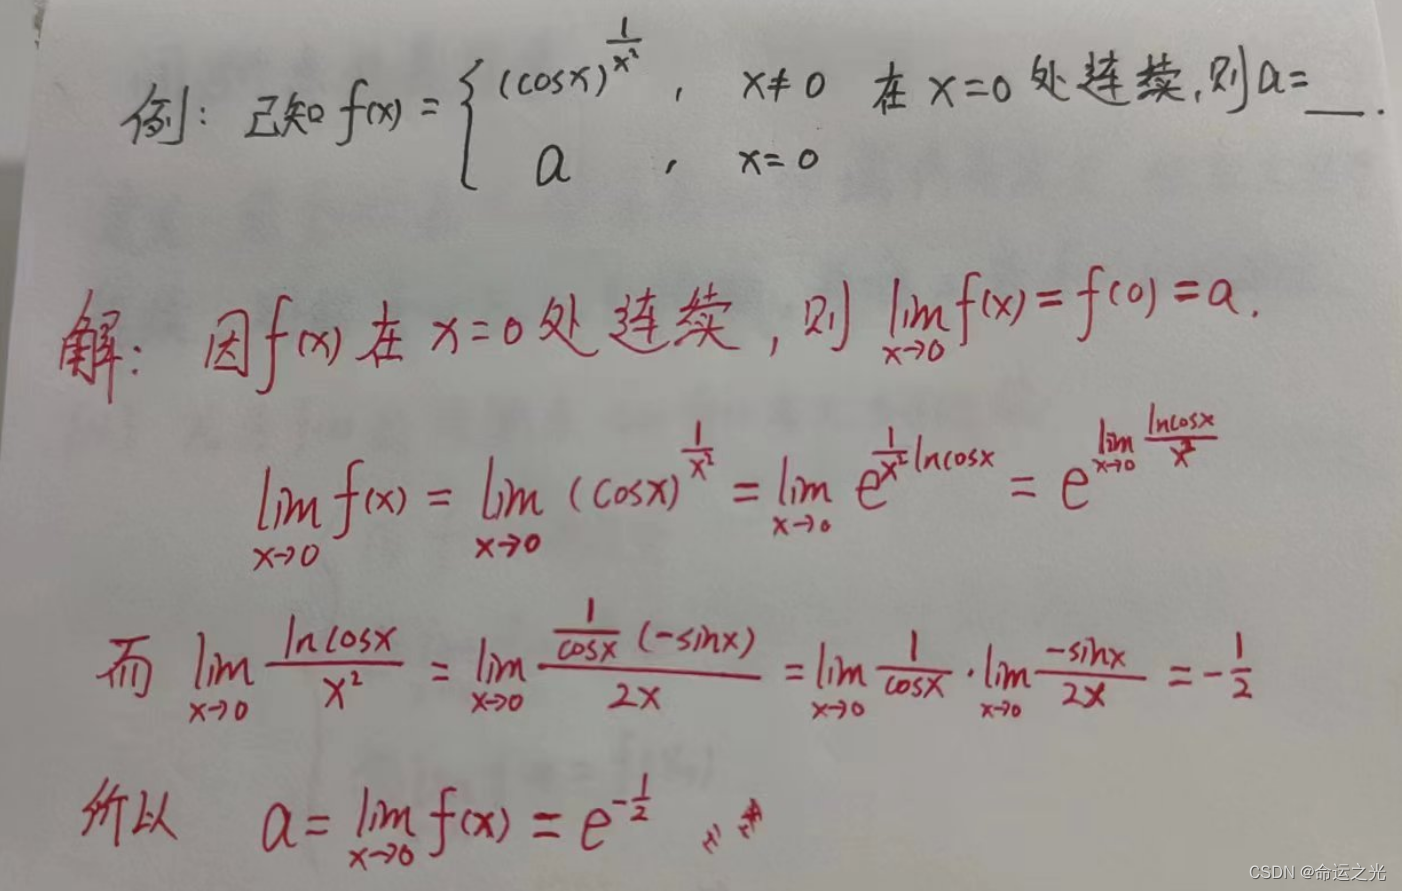 例: 已知 f(x) = { (cosx)^{1/x²} , x≠0 在 x=0 处连续,则 a=__.
a , x=0
解: 因 f(x) 在 x=0 处连续, 则 lim_{x→0} f(x) = f(0) = a.
lim_{x→0} f(x) = lim_{x→0} (cosx)^{1/x²} = lim_{x→0} e^{1/x² lncosx} = e^{lim_{x→0} lncosx/x²}
而 lim_{x→0} lncosx/x² = lim_{x→0} (1/cosx (-sinx))/2x = lim_{x→0} 1/cosx · lim_{x→0} -sinx/2x = -1/2
所以 a = lim_{x→0} f(x) = e^{-1/2}
CSDN @命运之光